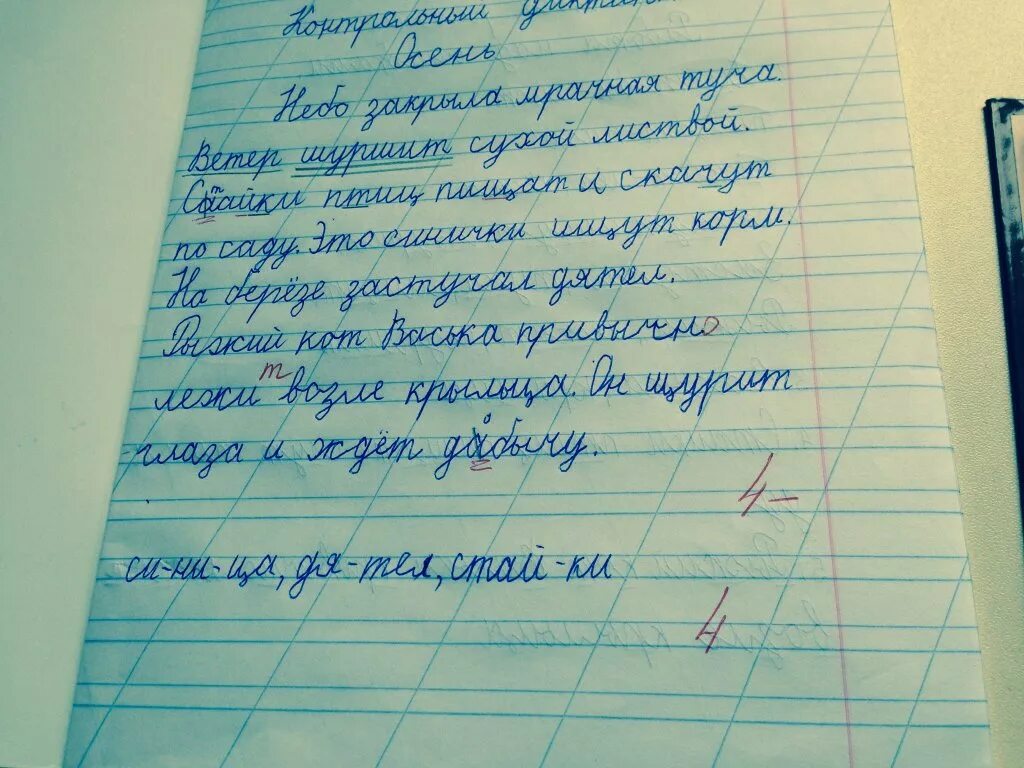 Контрольный диктант
Осень
Небо закрыла мрачная туча.
Ветер шуршит сухой листвой.
Стайки птиц пищат и скачут
по саду. Это синички ищут корм.
На берёзе застучал дятел.
Рыжий кот Васька привычно
лежит возле крыльца. Он щурит
глаза и ждёт добычу.
4-
си-ни-ца, дя-тел, стай-ки
4